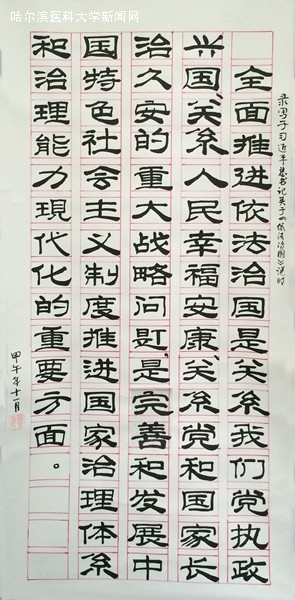 哈尔滨医科大学新闻网
录写于习近平总书记关于《依法治国》
全面推进依法治国是关系我们党执政
兴国、关系人民幸福安康、关系党和国家长
治久安的重大战略问题，是完善和发展中
国特色社会主义制度推进国家治理体系
和治理能力現代化的重要方面。
甲午年十一月